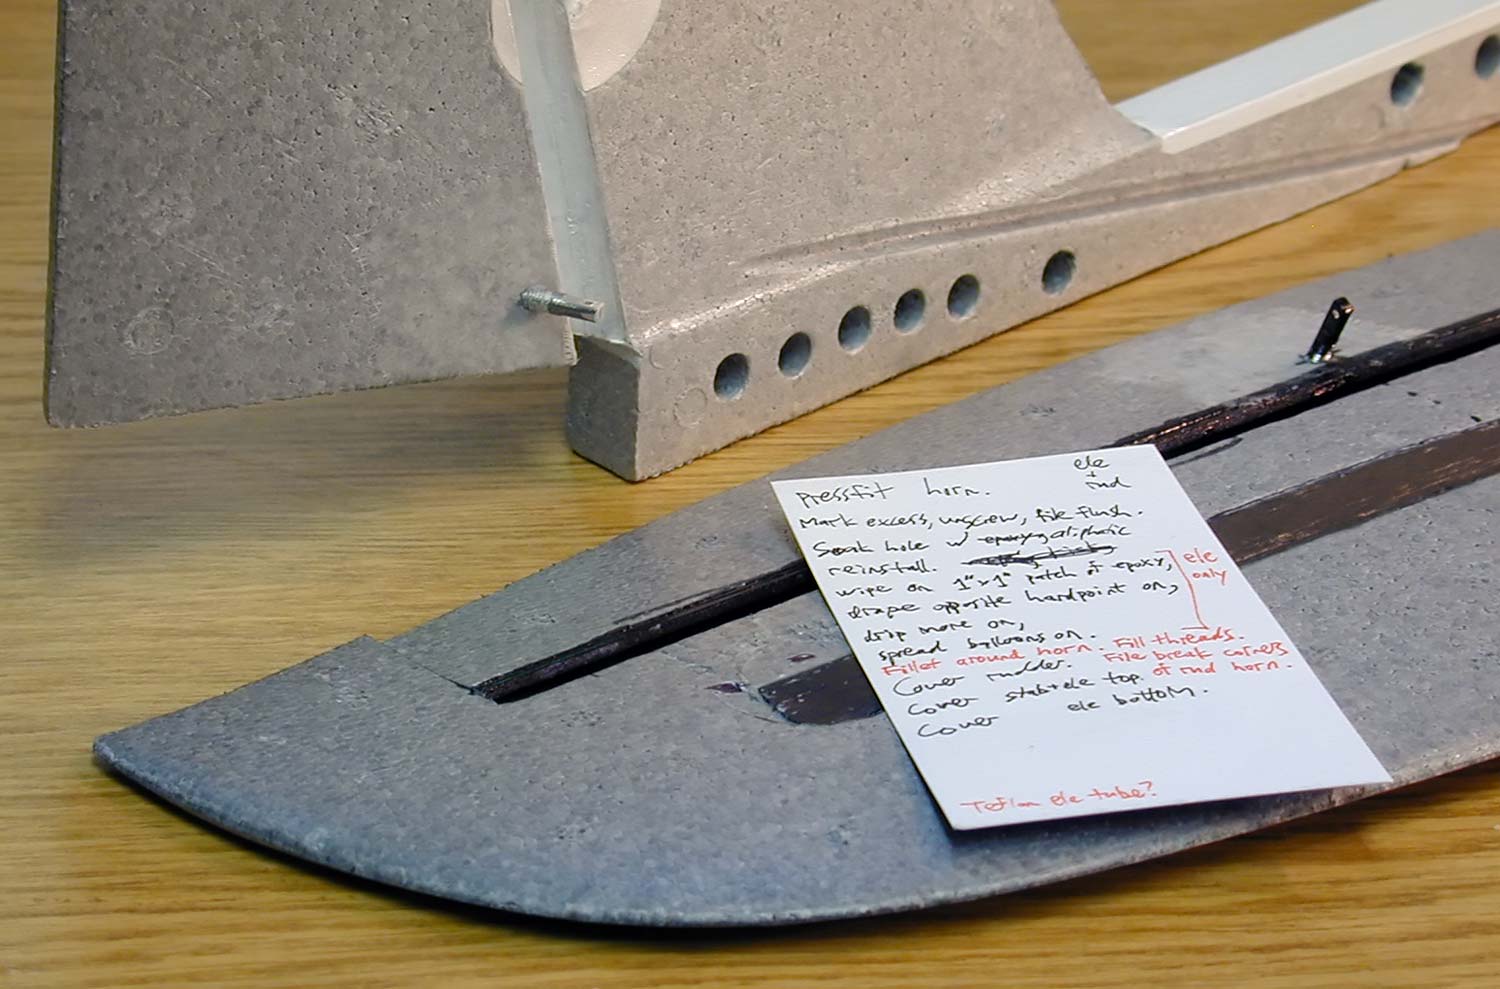 ele
+
rud
Pressfit horn.
Mark excess, unscrew, file flush.
Soak hole w/ epoxy aliphatic
reinstall.
wipe on 1"x1" patch of epoxy,
drape opposite hardpoint on,
drip more on,
spread balloons on.
ele
only
Fill threads.
Fillet around horn. File break corners
of rud horn.
Cover rudder.
Cover stab+ele top.
Cover ele bottom.
Teflon ele tube?